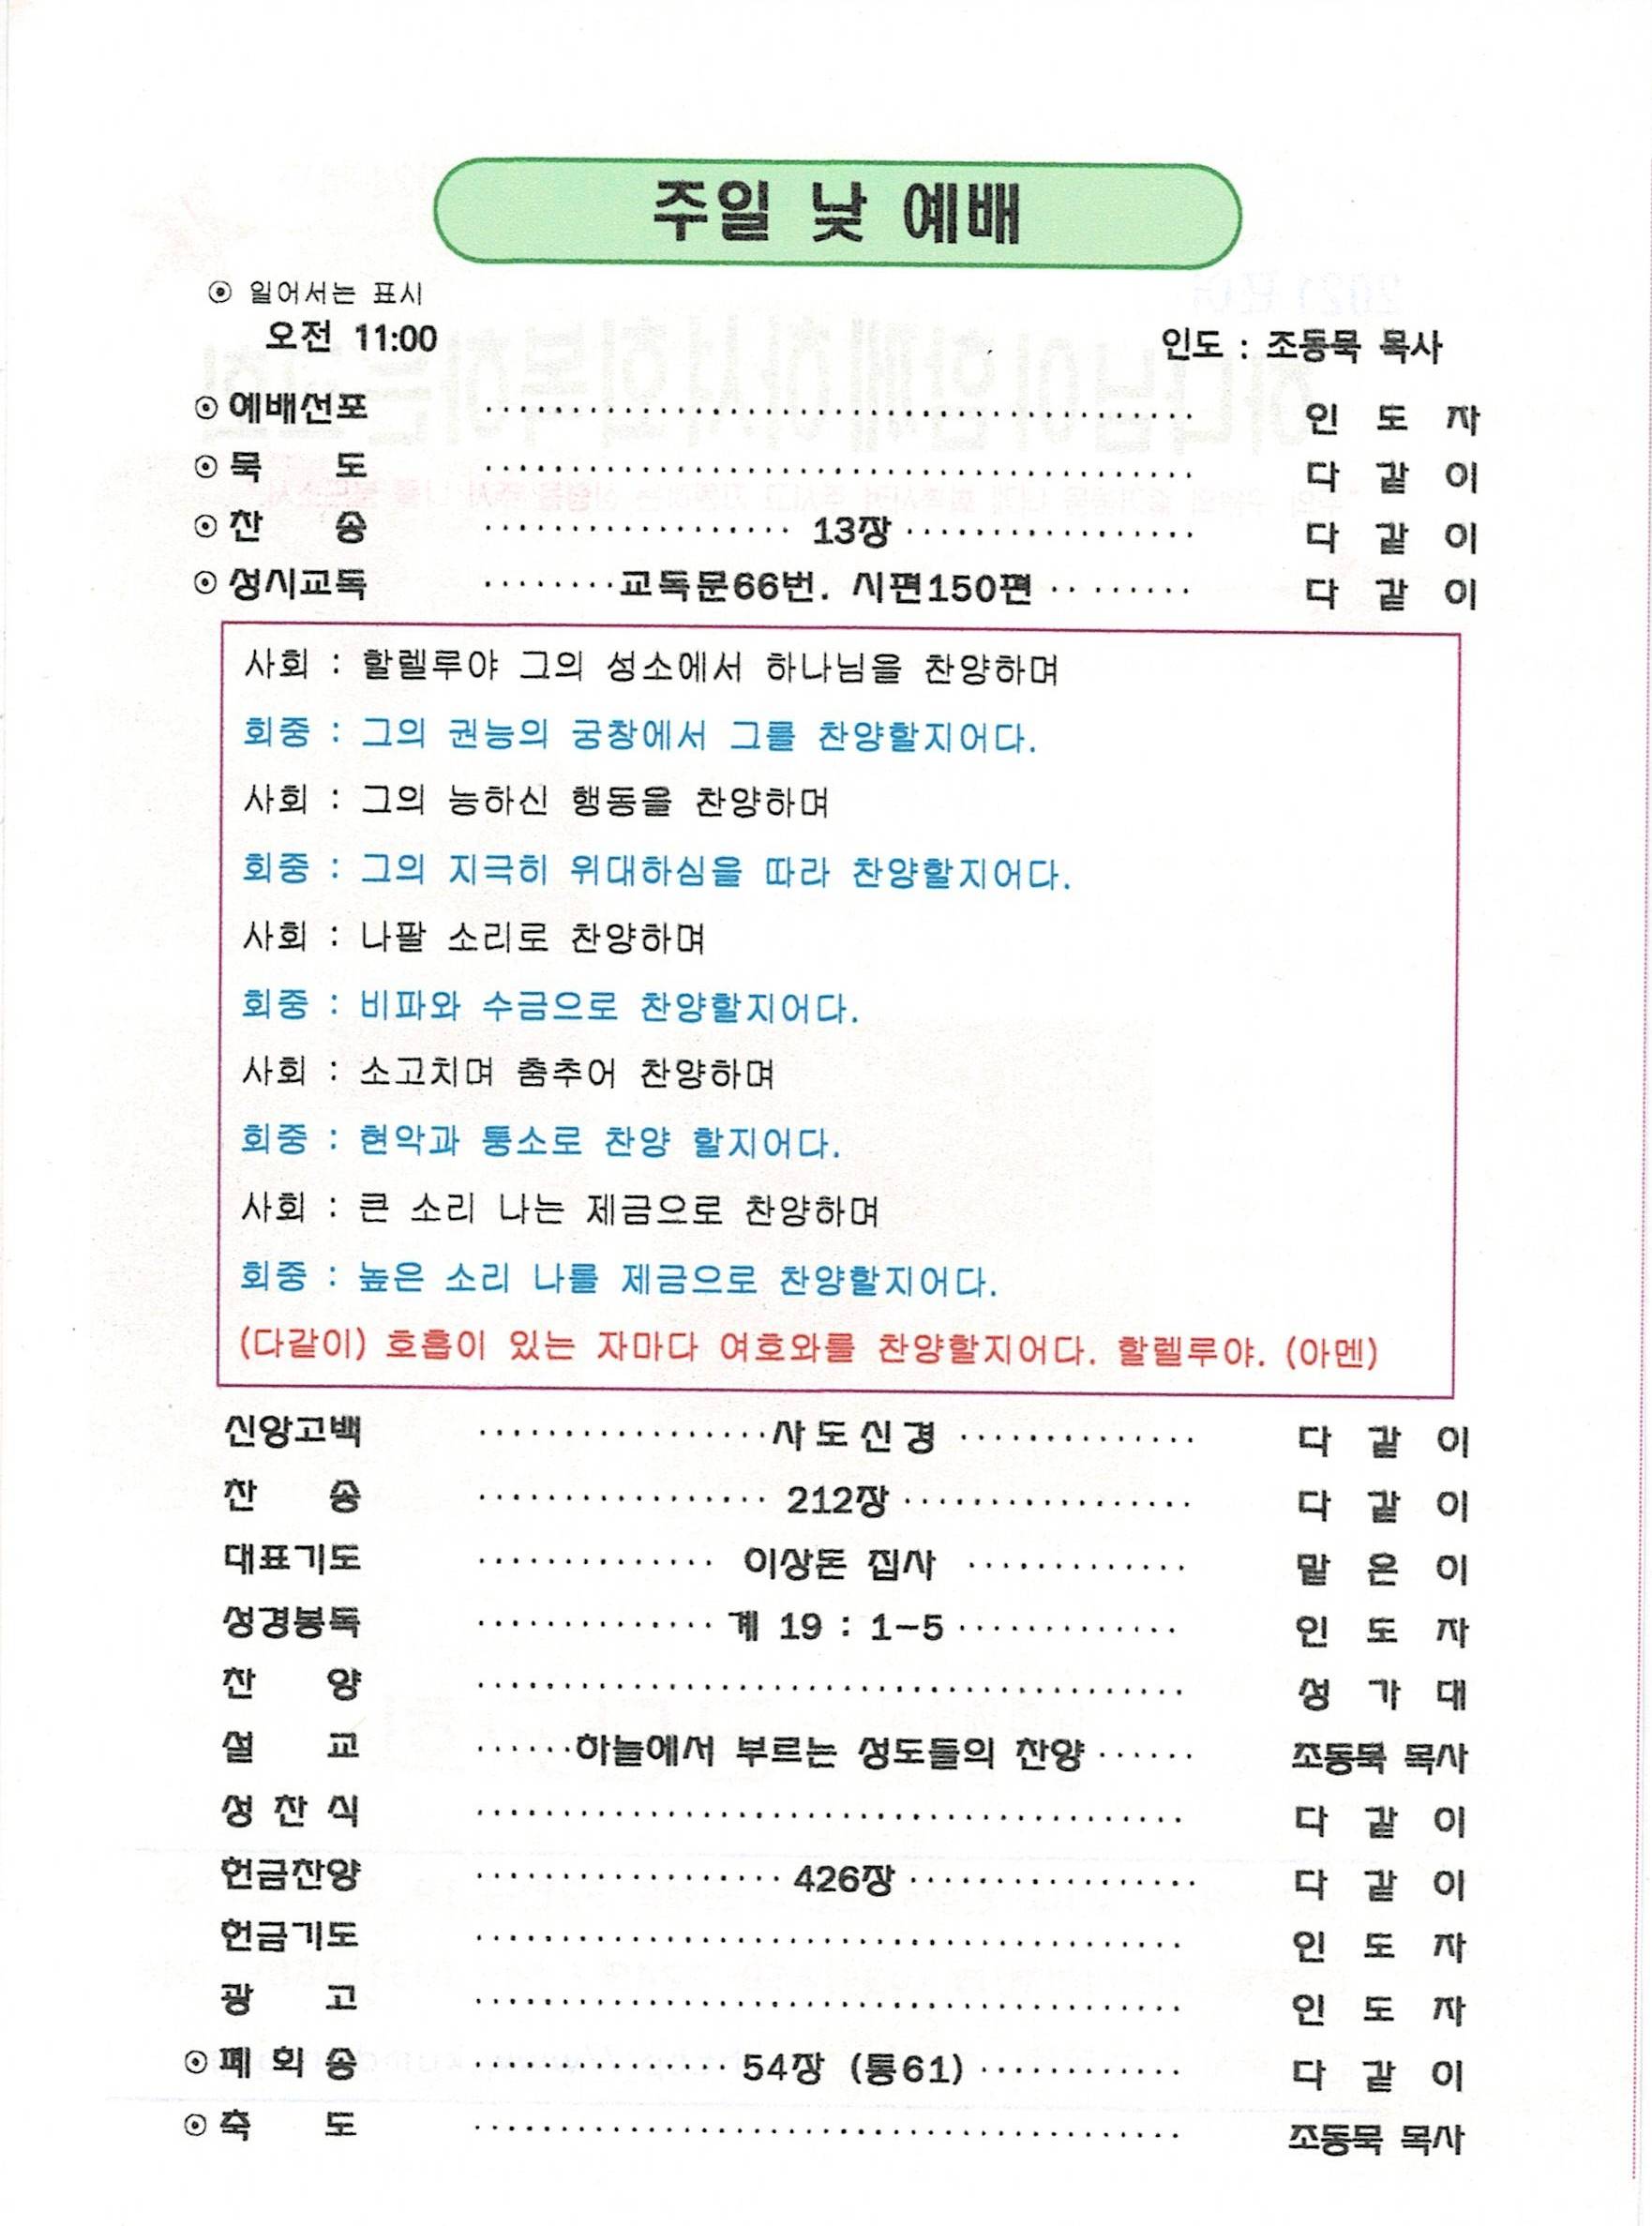 주일 낮 예배
⊙ 일어서는 표시
오전 11:00 인도 : 조동묵 목사
⊙ 예배선포 ········································ 인 도 자
⊙ 묵 도 ········································ 다 같 이
⊙ 찬 송 ·················· 13장 ················· 다 같 이
⊙ 성시교독 ········교독문66번. 시편150편 ·· ······ 다 같 이
사회 : 할렐루야 그의 성소에서 하나님을 찬양하며
회중 : 그의 권능의 궁창에서 그를 찬양할지어다.
사회 : 그의 능하신 행동을 찬양하며
회중 : 그의 지극히 위대하심을 따라 찬양할지어다.
사회 : 나팔 소리로 찬양하며
회중 : 비파와 수금으로 찬양할지어다.
사회 : 소고치며 춤추어 찬양하며
회중 : 현악과 퉁소로 찬양 할지어다.
사회 : 큰 소리 나는 제금으로 찬양하며
회중 : 높은 소리 나를 제금으로 찬양할지어다.
(다같이) 호흡이 있는 자마다 여호와를 찬양할지어다. 할렐루야. (아멘)
신앙고백 ·················사도신경 ·············· 다 같 이
찬 송 ················· 212장 ················· 다 같 이
대표기도 ·············· 이상돈 집사 ············· 맡 은 이
성경봉독 ·············· 계 19 : 1-5 ············· 인 도 자
찬 양 ········································ 성 가 대
설 교 ······하늘에서 부르는 성도들의 찬양 ······ 조동묵 목사
성 찬 식 ········································ 다 같 이
헌금찬양 ·················· 426장 ················· 다 같 이
헌금기도 ········································ 인 도 자
광 고 ········································ 인 도 자
⊙ 폐 회 송 ··············· 54장 (통61) ············ 다 같 이
⊙ 축 도 ········································ 조동묵 목사